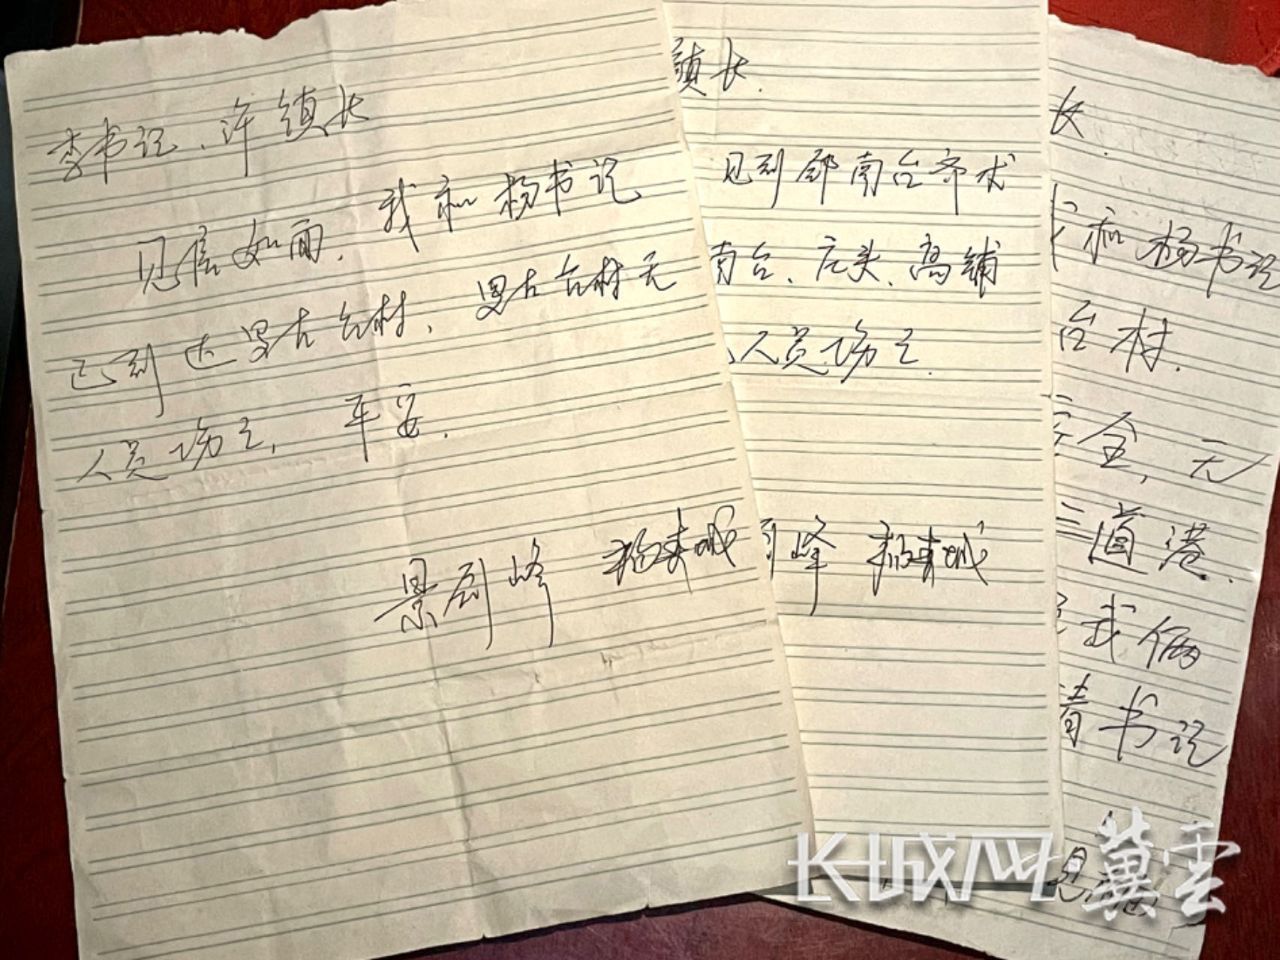 李书记、许镇长
见信如面，我和杨书记
已到达里古台村，里古台村无
人员伤亡，平安．
景剑峰
镇长．
见到邵南台乔术
南台、庄头、高铺
人员伤亡．
剑峰
长．
我和杨书记
台村．
安全，无
三道港．
我俩
清书记
见信
长城网 冀云